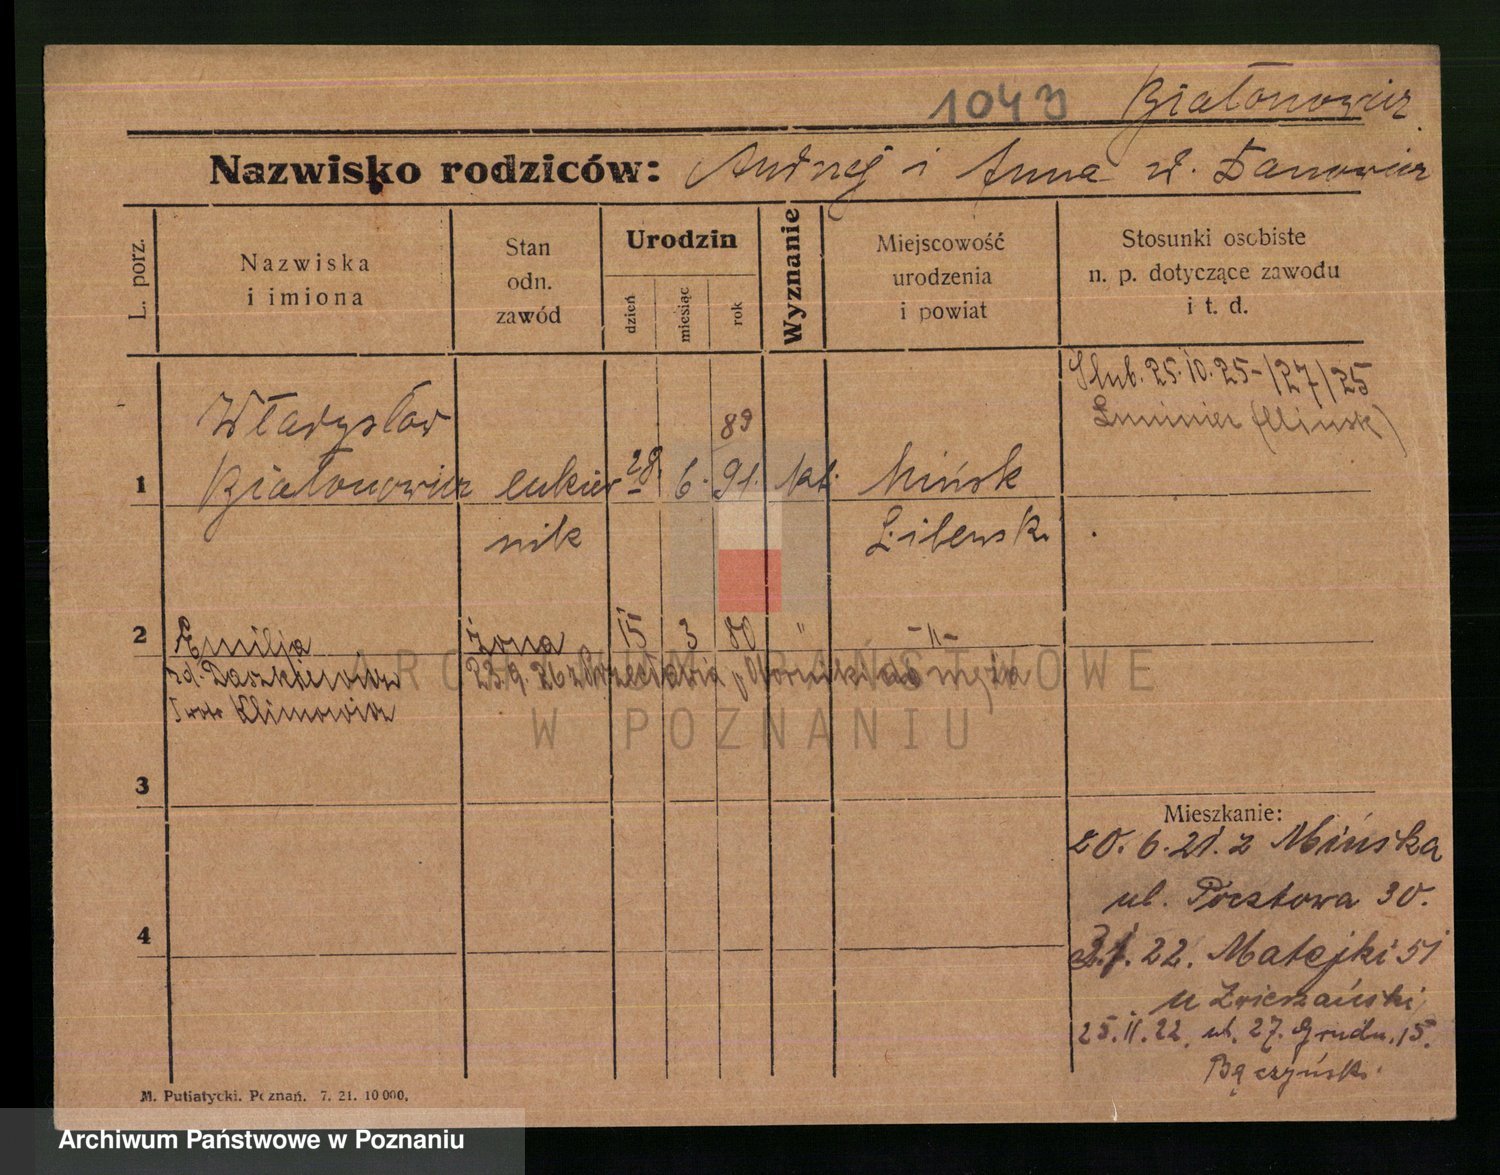 1043 Białonowicz
Nazwisko rodziców: Andrzej i Anna
L. porz.
Nazwiska
i imiona
Stan
odn.
zawód
Urodzin
dzień
miesiąc
rok
Wyznanie
Miejscowość
urodzenia
i powiat
Stosunki osobiste
n. p. dotyczące zawodu
i t. d.
Ślub. 25.10.25-/27/25
(Mińsk)
Władysław 89
1 Białonowicz cukier 28. 6. 91. kat. Mińsk
nik
2 Emilja żona 15 3 80 " -"-
zd. Daszkiewicz 23.9.26 z męża
Klimowicz
3
4
Mieszkanie:
20.6.21. z Mińska
ul. Pocztowa 30.
22. Matejki 51
u
25.11.22. ul. 27. Grudn. 15.
Bączyński
M. Putiatycki. Poznań. 7. 21. 10 000.
ARCHIWUM PAŃSTWOWE
W POZNANIU
Archiwum Państwowe w Poznaniu